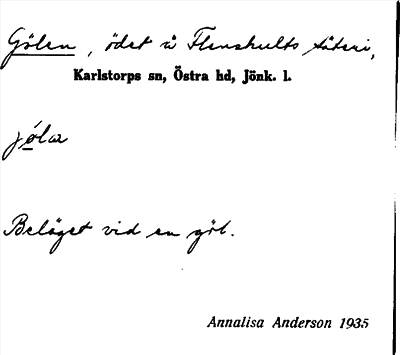 Gölen, ödet å Flenshults säteri,
Karlstorps sn, Östra hd, Jönk. l.
jölar
Beläget vid en göl.
Annalisa Anderson 1935